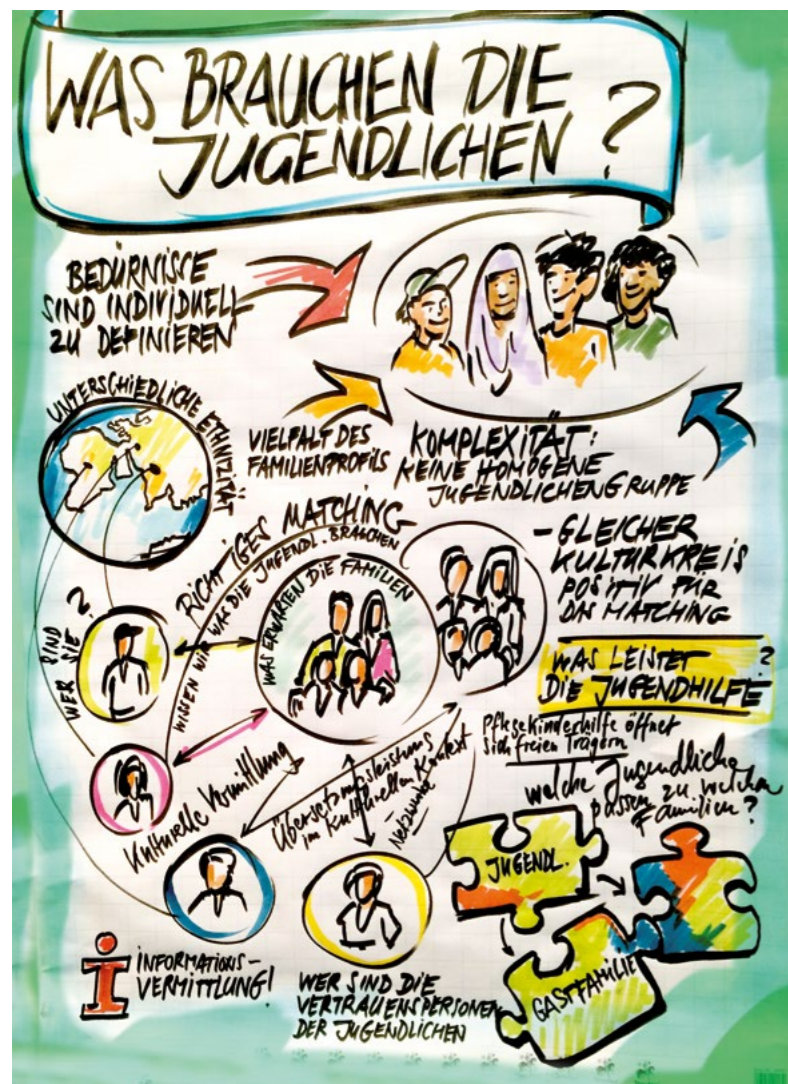 WAS BRAUCHEN DIE
JUGENDLICHEN ?
BEDÜRNISSE
SIND INDIVIDUELL
ZU DEFINIEREN
UNTERSCHIEDLICHE ETHNIZITÄT
VIELFALT DES
FAMILIENPROFILS
KOMPLEXITÄT:
KEINE HOMOGENE
JUGENDLICHENGRUPPE
- GLEICHER
KULTURKREIS
POSITIV FÜR
DAS MATCHING
RICHTIGES MATCHING
WISSEN WIR WAS DIE JUGENDL. BRAUCHEN
WAS ERWARTEN DIE FAMILIEN
WER SIND SIE ?
WAS LEISTET ?
DIE JUGENDHILFE
Pflegekinderhilfe öffnet
sich freien Trägern
welche Jugendliche
passen zu welchen
Familien?
Kulturelle Vermittlung
Übersetzungsleistung
im kulturellen Kontext
- Netzwerke
JUGENDL.
GASTFAMILIE
i INFORMATIONS-
VERMITTLUNG!
WER SIND DIE
VERTRAUENSPERSONEN
DER JUGENDLICHEN